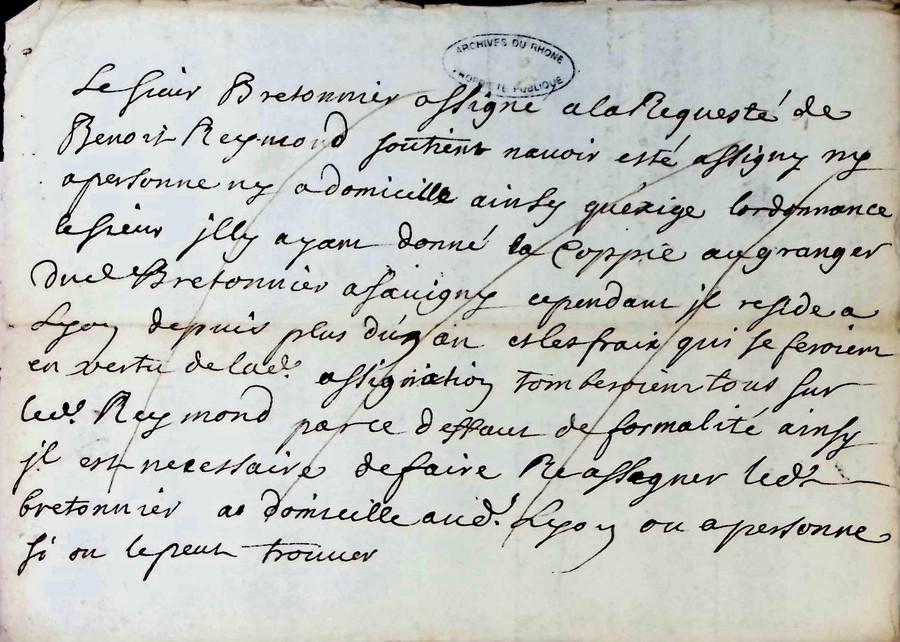 ARCHIVES DU RHONE
PROPRIETE PUBLIQUE
Le sieur Bretonnier assigné a la Requesté de
Benoit Reymond soutient navoir esté assigny ny
apersonne ny a domicille ainsy quéxige lordonnance
lesieur jlly ayant donné la Coppie au granger
dud. Bretonnier a Savigny cependant jl reside a
Lyon depuis plus dún an et les fraix qui se feroient
en vertu de lad. assignation tomberoient tous sur
led. Reymond parce deffaut de formalité ainsy
jl est necessaire de faire Reassigner led.
bretonnier a domicille aud. Lyon ou apersonne
si on lepeut trouver